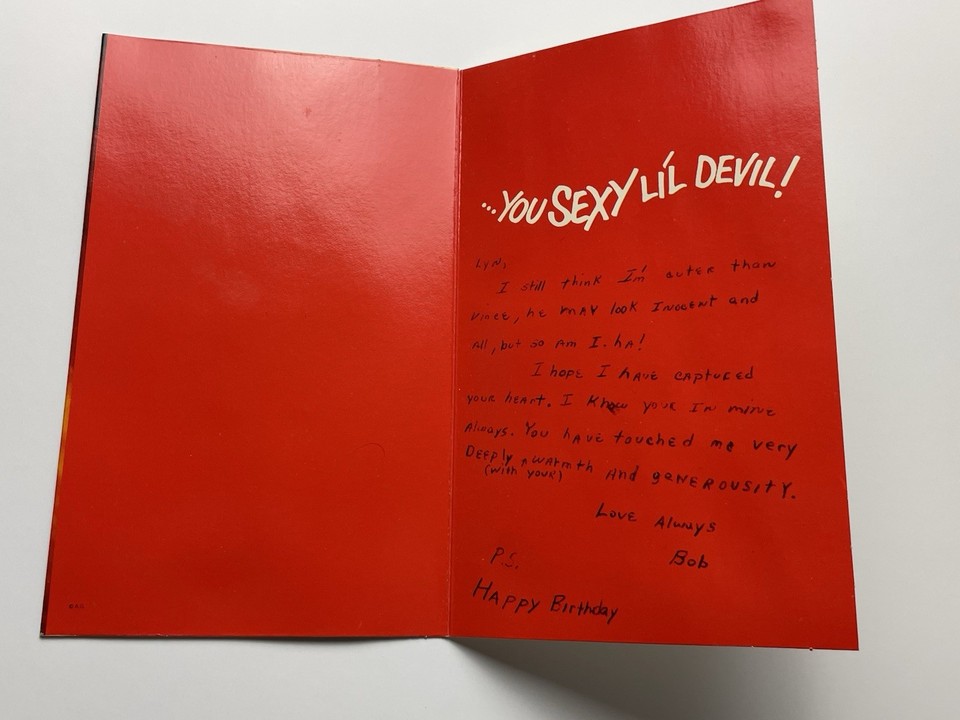 ...YOU SEXY LI'L DEVIL!
Lyn,
I still think I'm cuter than
Vince, he may look Inocent and
all, but so am I. ha!
I hope I have captured
your heart. I Know your In mine
Always. You have touched me very
Deeply ^ warmth and generousity.
(with your)
Love Always
Bob
P.S.
Happy Birthday